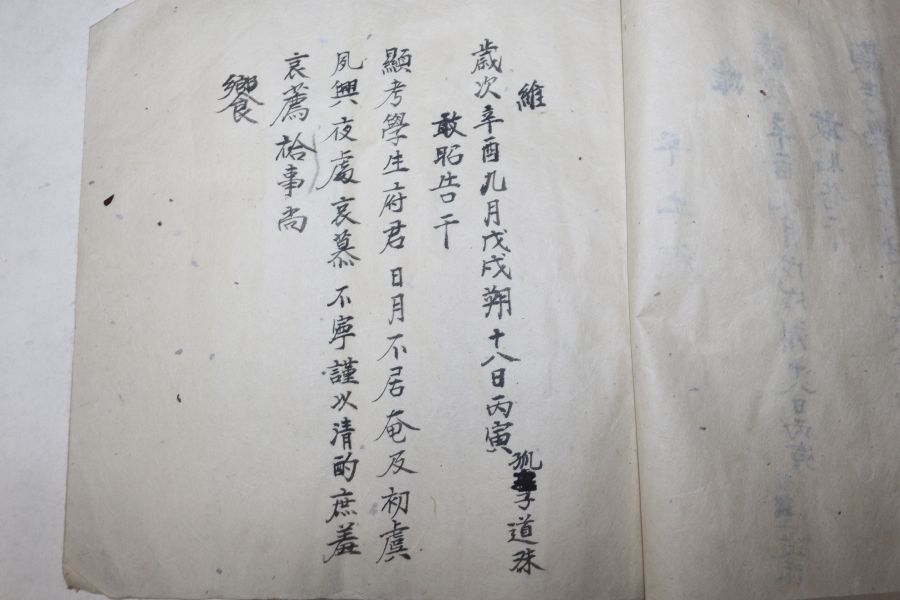 維
歲次辛酉九月戊戌朔十八日丙寅 孤子道
敢昭告于
顯考學生府君日月不居奄及初虞
夙興夜處哀慕不寧謹以清酌庶羞
哀薦祫事尚
饗